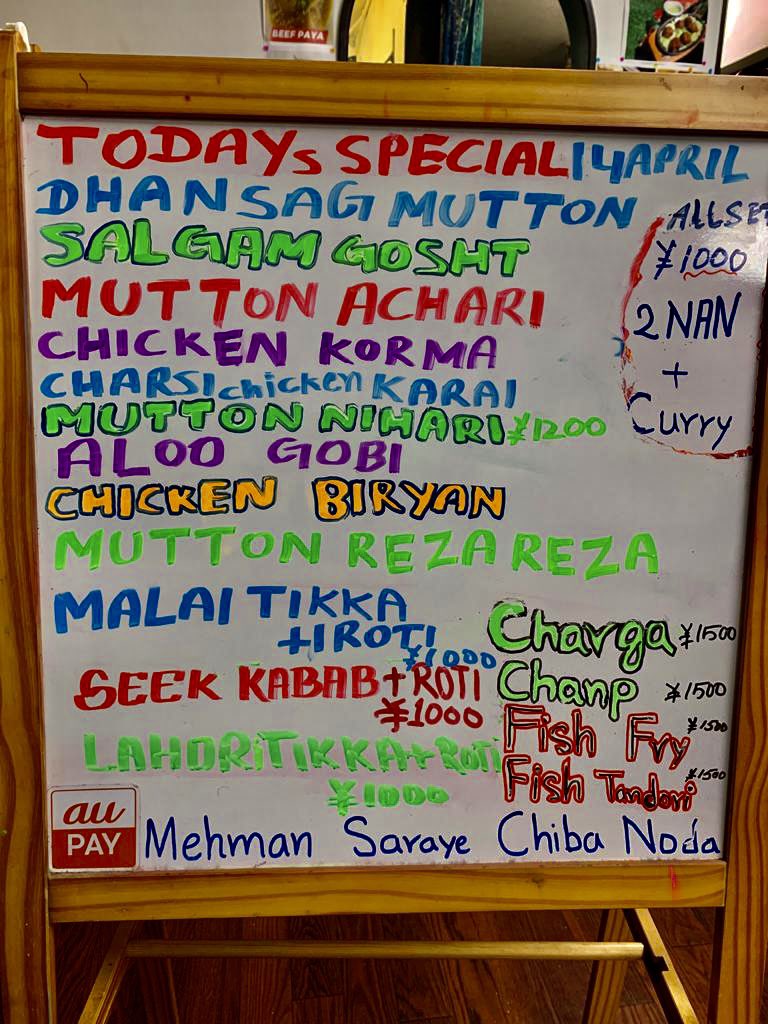 BEEF PAYA
TODAYs SPECIAL 14 APRIL
DHANSAG MUTTON
SALGAM GOSHT
MUTTON ACHARI
CHICKEN KORMA
CHARSI chicken KARAI
MUTTON NIHARI ¥1200
ALOO GOBI
CHICKEN BIRYAN
MUTTON REZA REZA
ALLSET
¥1000
2 NAN
+
Curry
MALAI TIKKA
+1 ROTI
¥1000
SEEK KABAB + ROTI
¥1000
LAHORI TIKKA + ROTI
¥1000
Charga ¥1500
Chanp ¥1500
Fish Fry ¥1500
Fish Tandori ¥1500
au
PAY
Mehman Saraye Chiba Noda